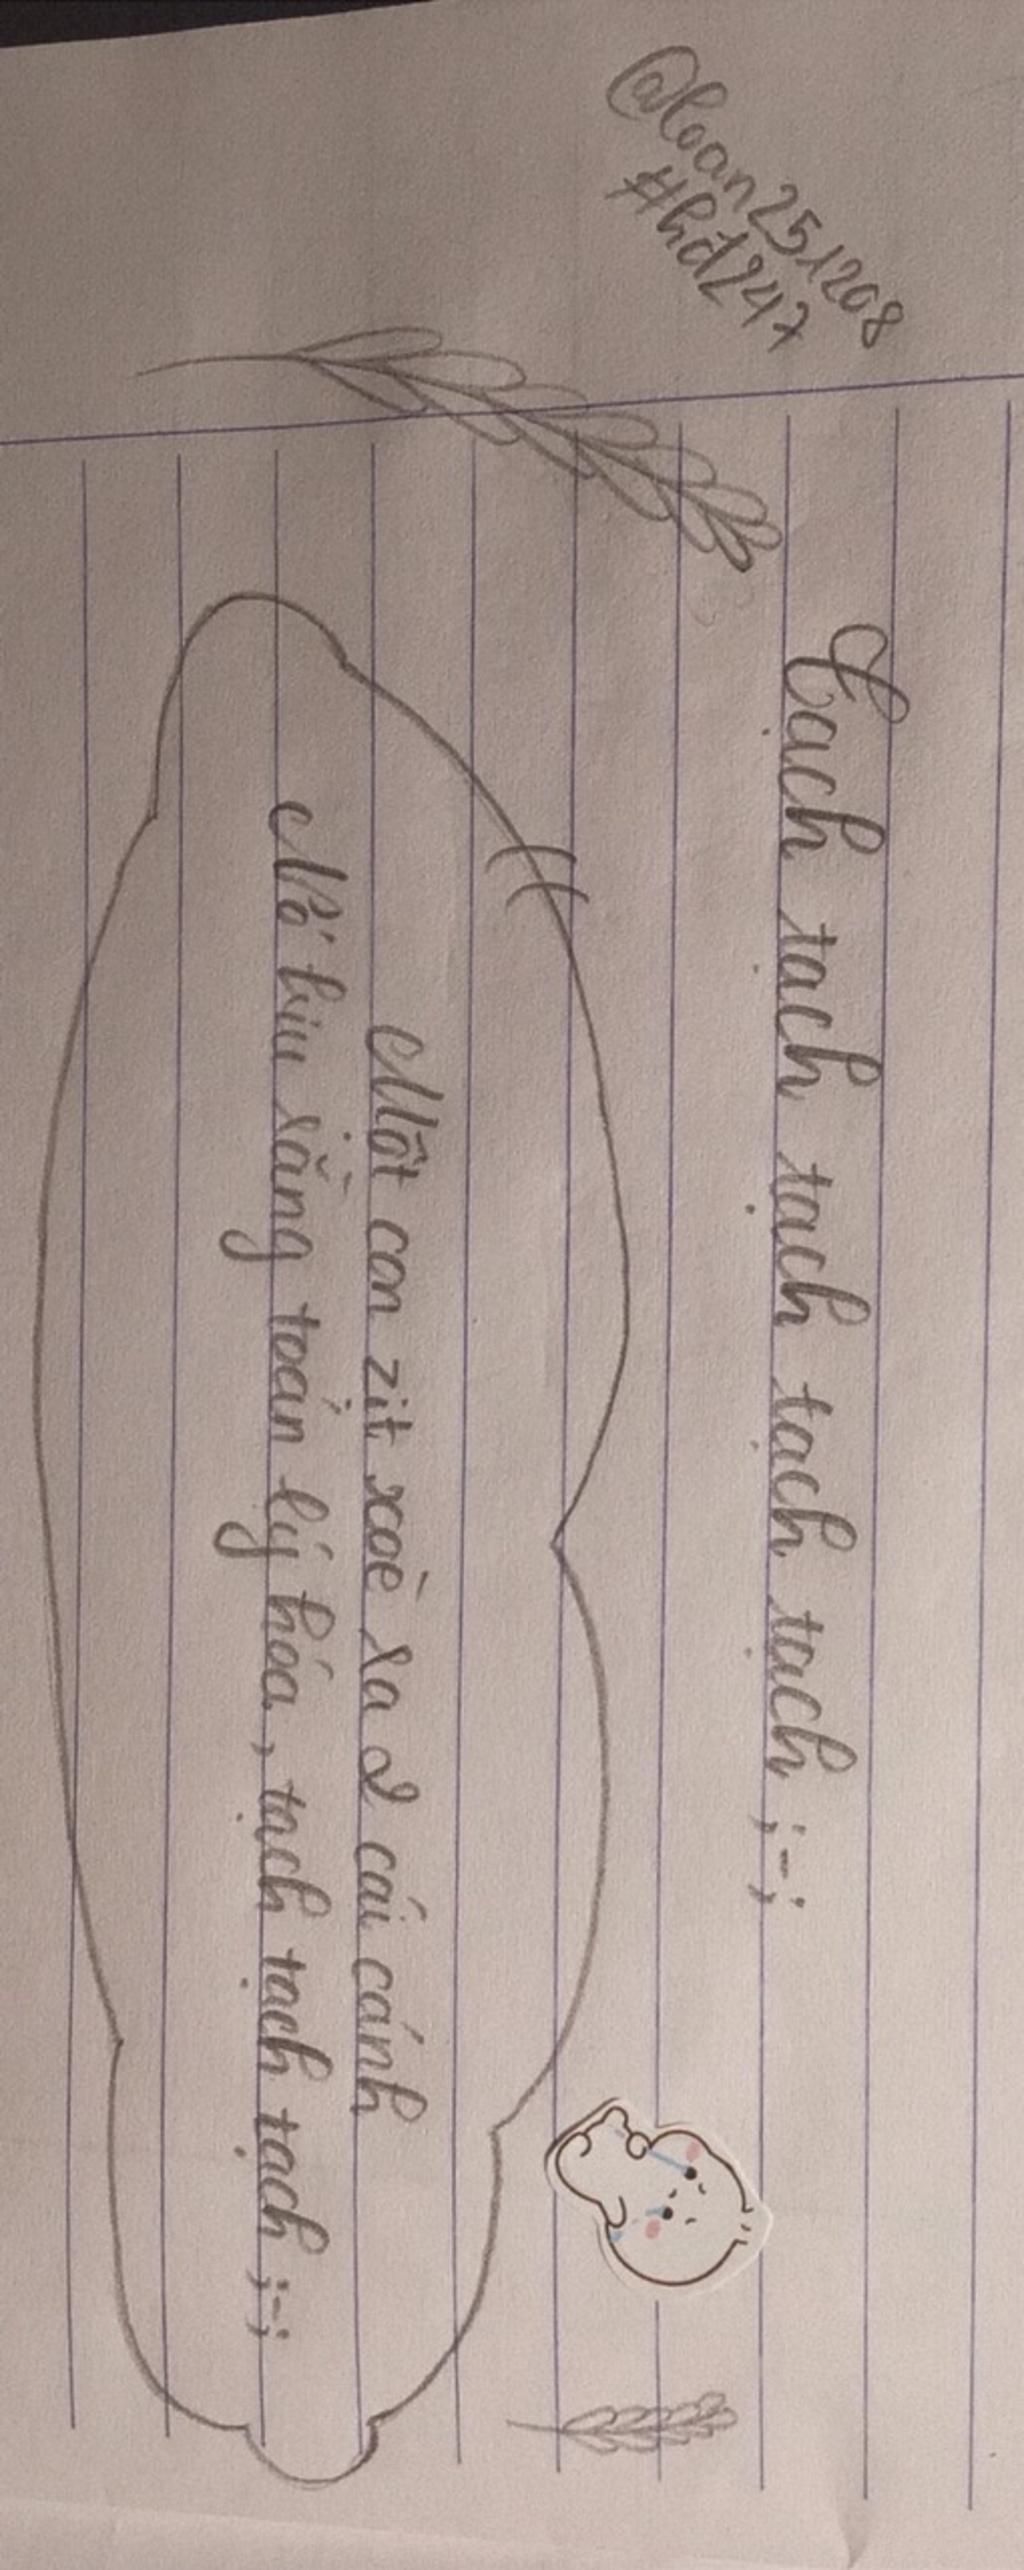 @loan251208
#hđ247
Tạch tạch tạch tạch tạch ;-;
Một con zịt xoè ra 2 cái cánh
Nó kiu rằng toán lý hóa, tạch tạch tạch ;-;